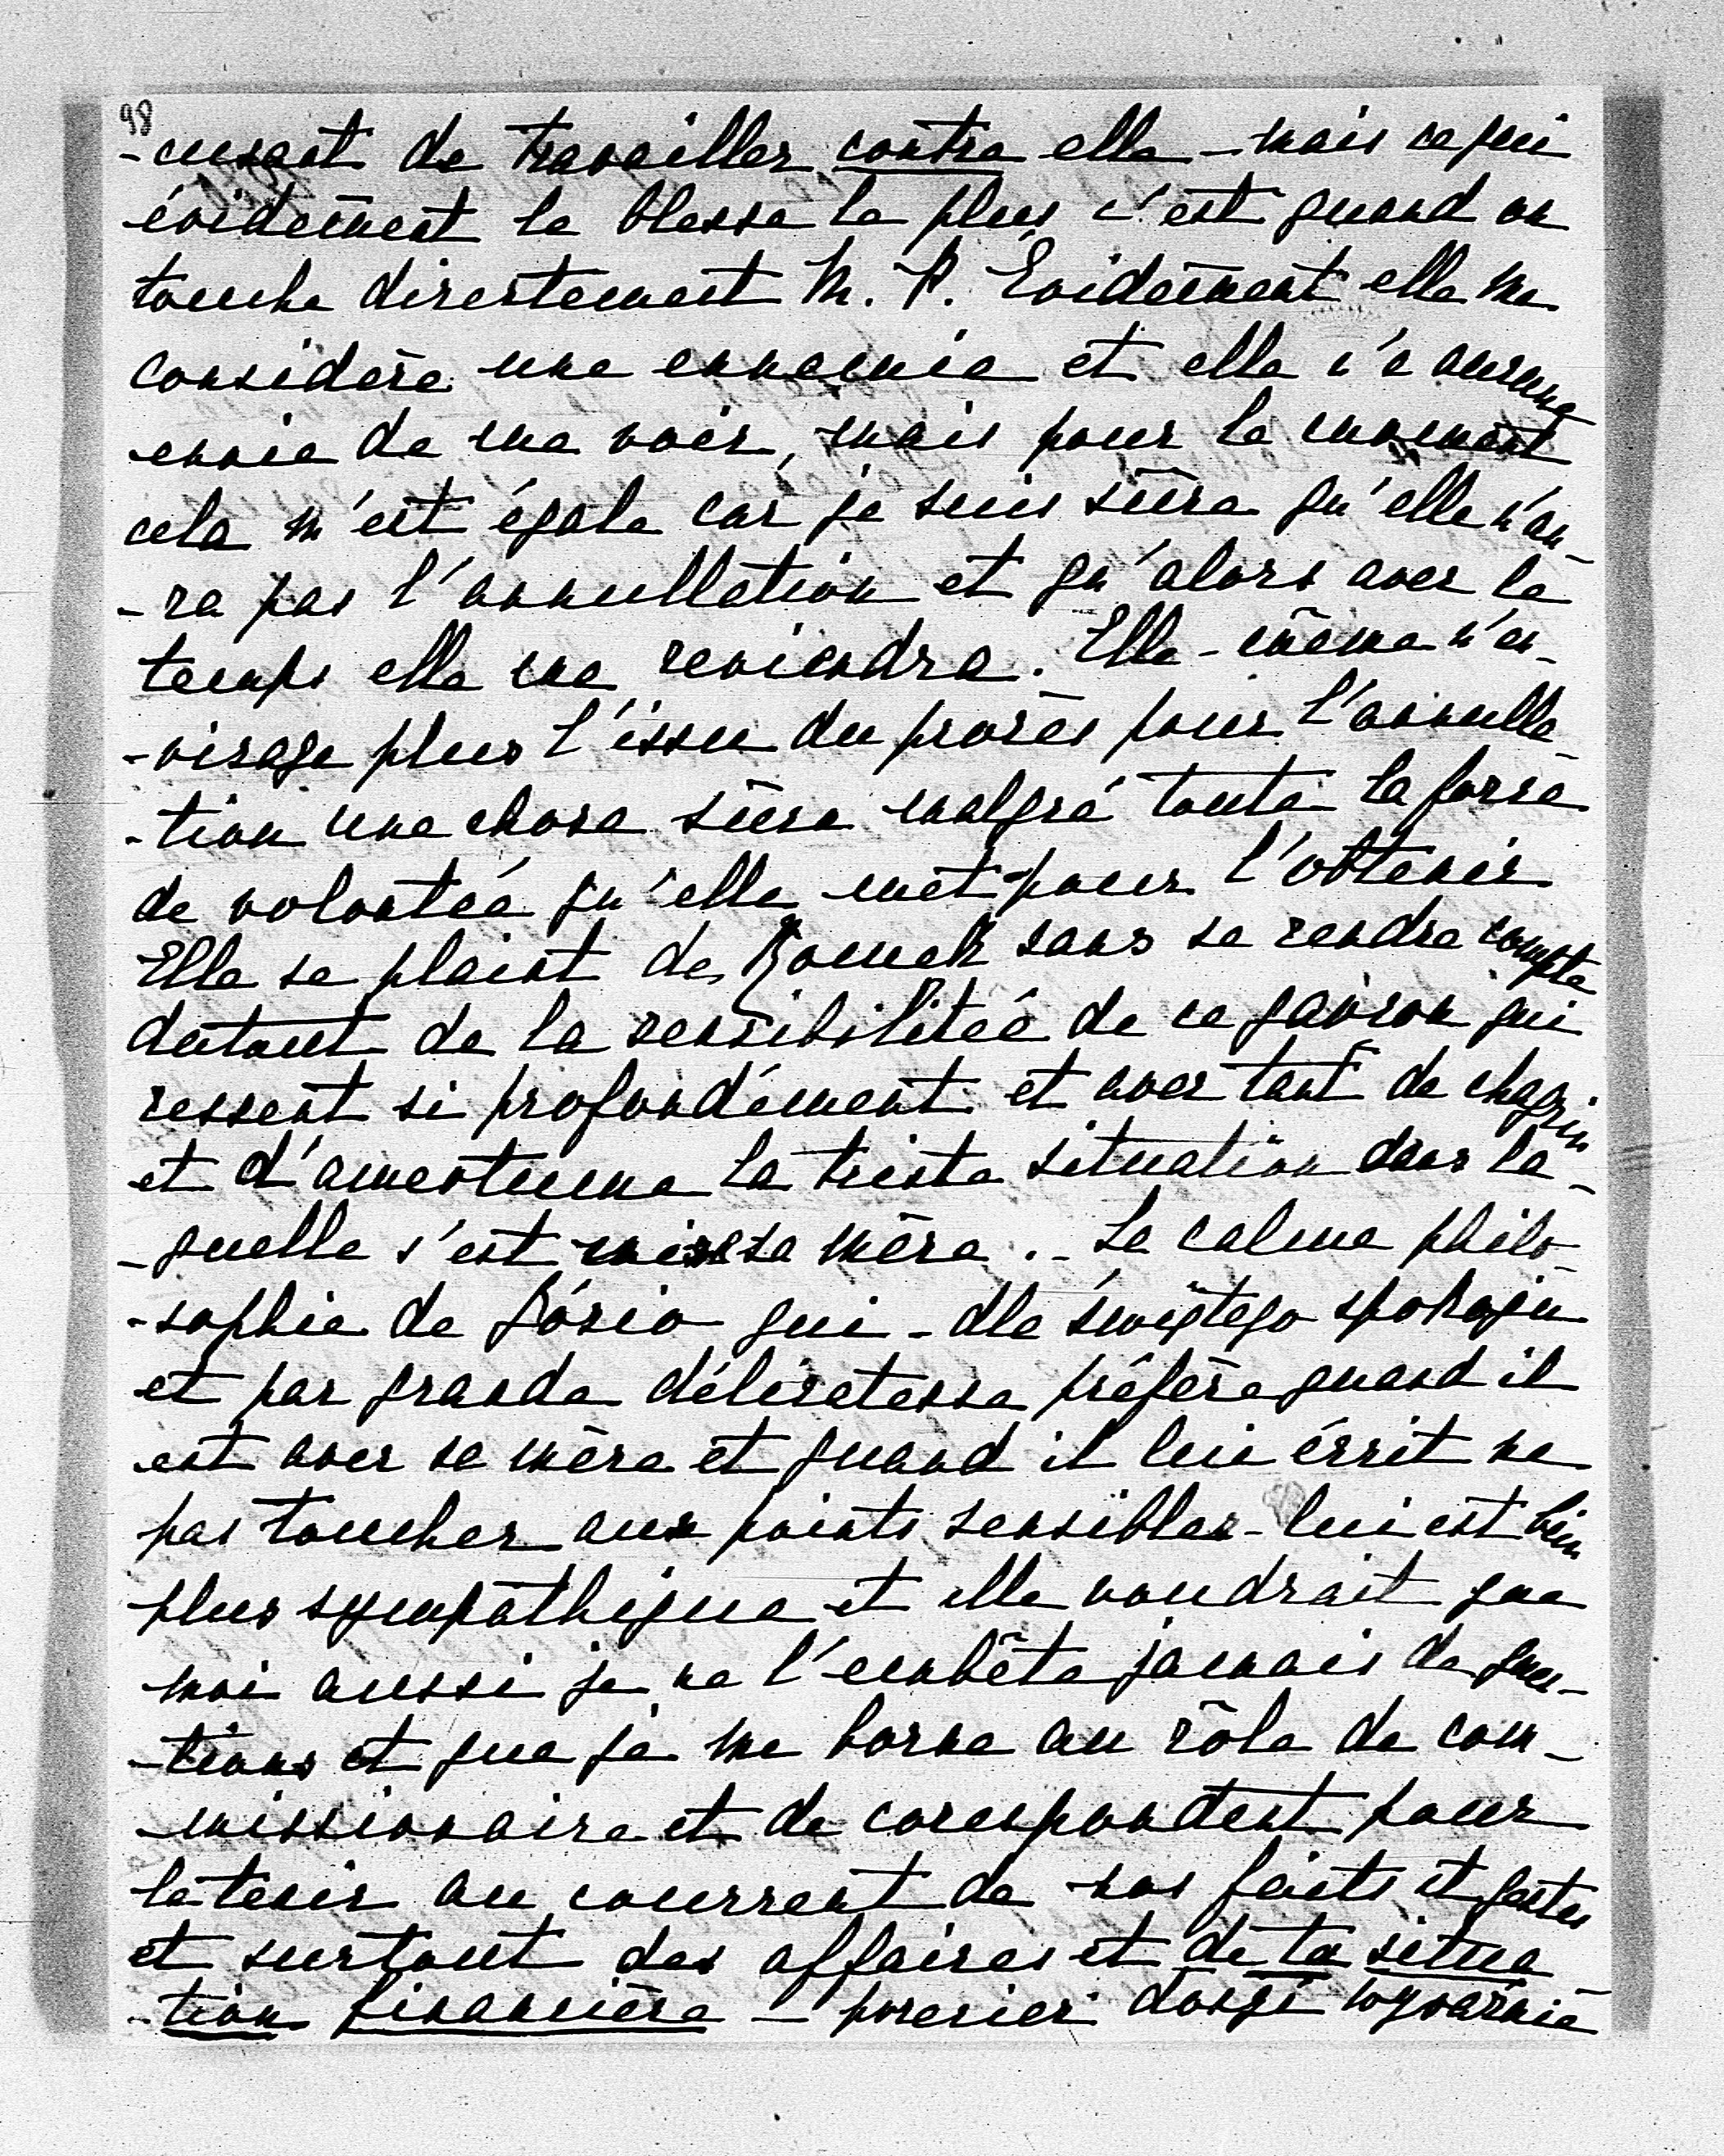 98
-cusant de travailler contre elle – mais ce qui
évidem̄ent la blesse le plus c'est quand on
touche directement M. P. Évidem̄ent elle me
considère une ennemie et elle n'a aucune
envie de me voir, mais pour le moment
cela m'est égale car je suis sûre qu'elle n'au-
-ra pas l'annullation et qu'alors avec le
temps elle me reviendra. Elle-même n'en-
-visage plus l'issu du procès pour l'annulla-
-tion une chose sûre malgré toute la force
de volontée qu'elle met pour l'obtenir
Elle se plaint de Romek sans se rendre compte
dutout de la sensibilitée de ce garçon qui
ressent si profondément et avec tant de chagrin
et d'amertume la triste situation dans la-
-quelle s'est mise sa mère. – La calme philo-
-sophie de Józio qui – dla świętego spokoju
et par grande délicatesse préfère quand il
est avec sa mère et quand il lui écrit ne
pas toucher aux points sensibles – lui est bien
plus sympathique et elle voudrait que
moi aussi je ne l'embête jamais de ques-
-tions et que je me borne au rôle de com-
-missionaire et de corespondent pour
la tenir au courrent de nos faits et gestes
et surtout des affaires et de ta situa
-tion financière – przecież dosyć wyraźnie